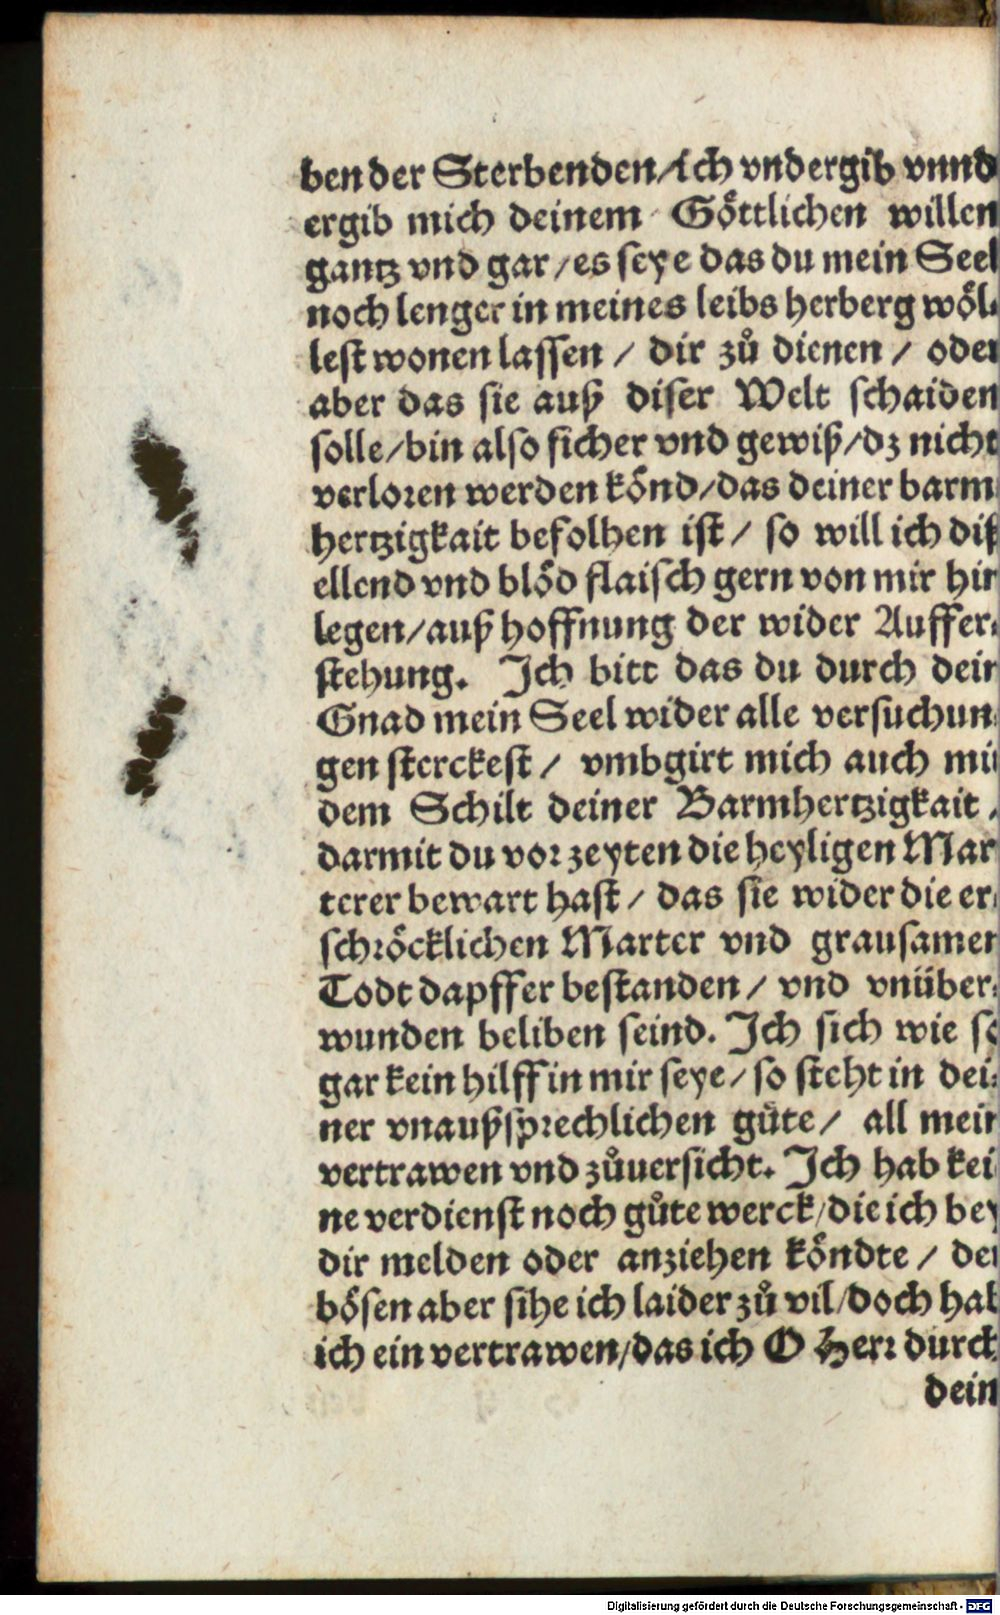 ben der Sterbenden/ich vndergib vnnd
ergib mich deinem Göttlichen willen
gantz vnd gar/es seye das du mein Seel
noch lenger in meines leibs herberg wöl⸗
lest wonen lassen / dir zů dienen / oder
aber das sie auß diser Welt schaiden
solle/bin also sicher vnd gewiß/dz nicht
verloren werden könd/das deiner barm
hertzigkait befolhen ist / so will ich diß
ellend vnd blöd flaisch gern von mir hin
legen/auß hoffnung der wider Auffer⸗
stehung. Ich bitt das du durch dein
Gnad mein Seel wider alle versuchun⸗
gen sterckest / vmbgirt mich auch mit
dem Schilt deiner Barmhertzigkait /
darmit du vor zeyten die heyligen Mar
terer bewart hast / das sie wider die er⸗
schröcklichen Marter vnd grausamen
Todt dapffer bestanden / vnd vnüber⸗
wunden beliben seind. Ich sich wie so
gar kein hilff in mir seye/so steht in dei⸗
ner vnaußsprechlichen güte/ all mein
vertrawen vnd zůuersicht. Ich hab kei
ne verdienst noch gůte werck/die ich bey
dir melden oder anziehen köndte / der
bösen aber sihe ich laider zů vil/doch hab
ich ein vertrawen/das ich O Herr durch
dein
Digitalisierung gefördert durch die Deutsche Forschungsgemeinschaft - DFG